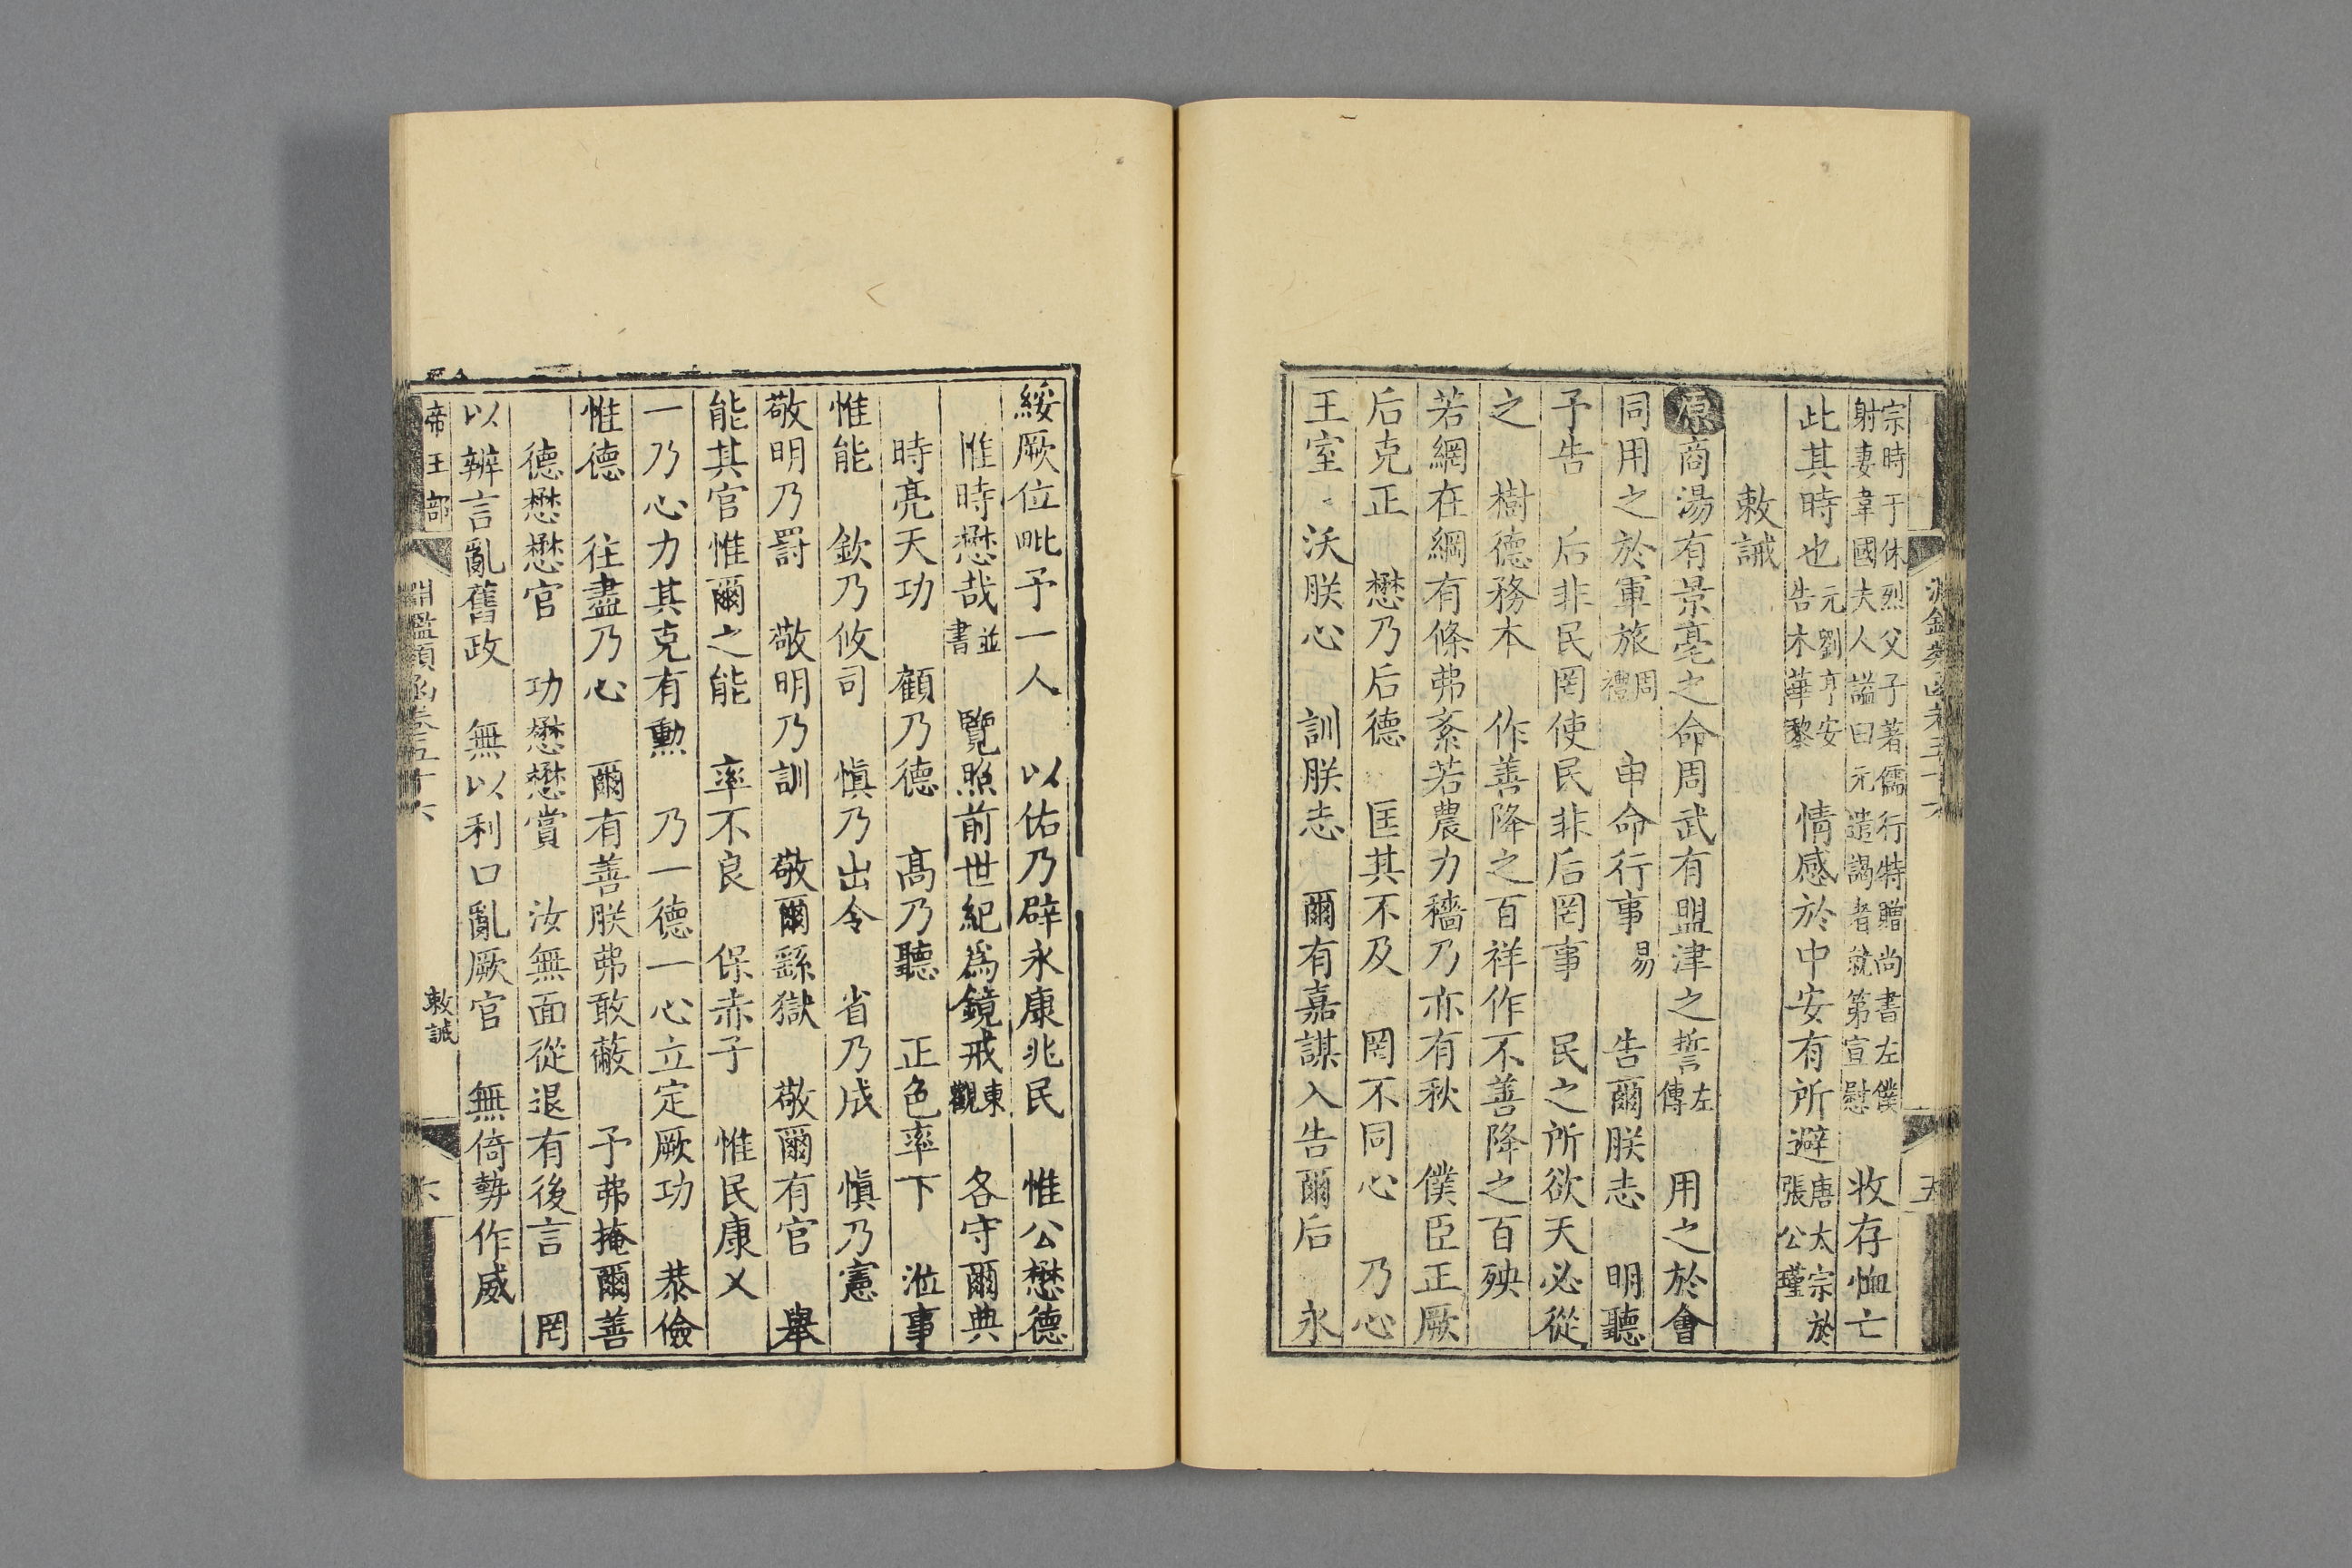 宗時于休烈父子著儒行特贈尚書左僕
射妻韋國夫人謚曰元遣謁者就第宣慰　收存恤亡
此其時也元劉亨安告木華黎　情感於中安有所避唐太宗於張公瑾
敕誡
原商湯有景亳之命周武有盟津之誓左傳　用之於會
同用之於軍旅周禮　申命行事易　告爾朕志　明聽
予告　后非民罔使民非后罔事　民之所欲天必從
之　樹德務本　作善降之百祥作不善降之百殃
若網在綱有條弗紊若農力穡乃亦有秋　僕臣正厥
后克正　懋乃后德　匡其不及　罔不同心　乃心
王室　沃朕心　訓朕志　爾有嘉謀入告爾后　永
綏厥位毗予一人　以佑乃辟永康兆民　惟公懋德
惟時懋哉並書　覽照前世紀為鏡戒東觀　各守爾典
時亮天功　顧乃德　高乃聽　正色率下　涖事
惟能　欽乃攸司　慎乃出令　省乃成　慎乃憲
敬明乃罰　敬明乃訓　敬爾繇獄　敬爾有官　舉
能其官惟爾之能　率不良　保赤子　惟民康乂
一乃心力其克有勳　乃一德一心立定厥功　恭儉
惟德　往盡乃心　爾有善朕弗敢蔽　予弗掩爾善
德懋懋官　功懋懋賞　汝無面從退有後言　罔
以辨言亂舊政　無以利口亂厥官　無倚勢作威
帝王部　淵鑑類函卷五十六　敕誡　六